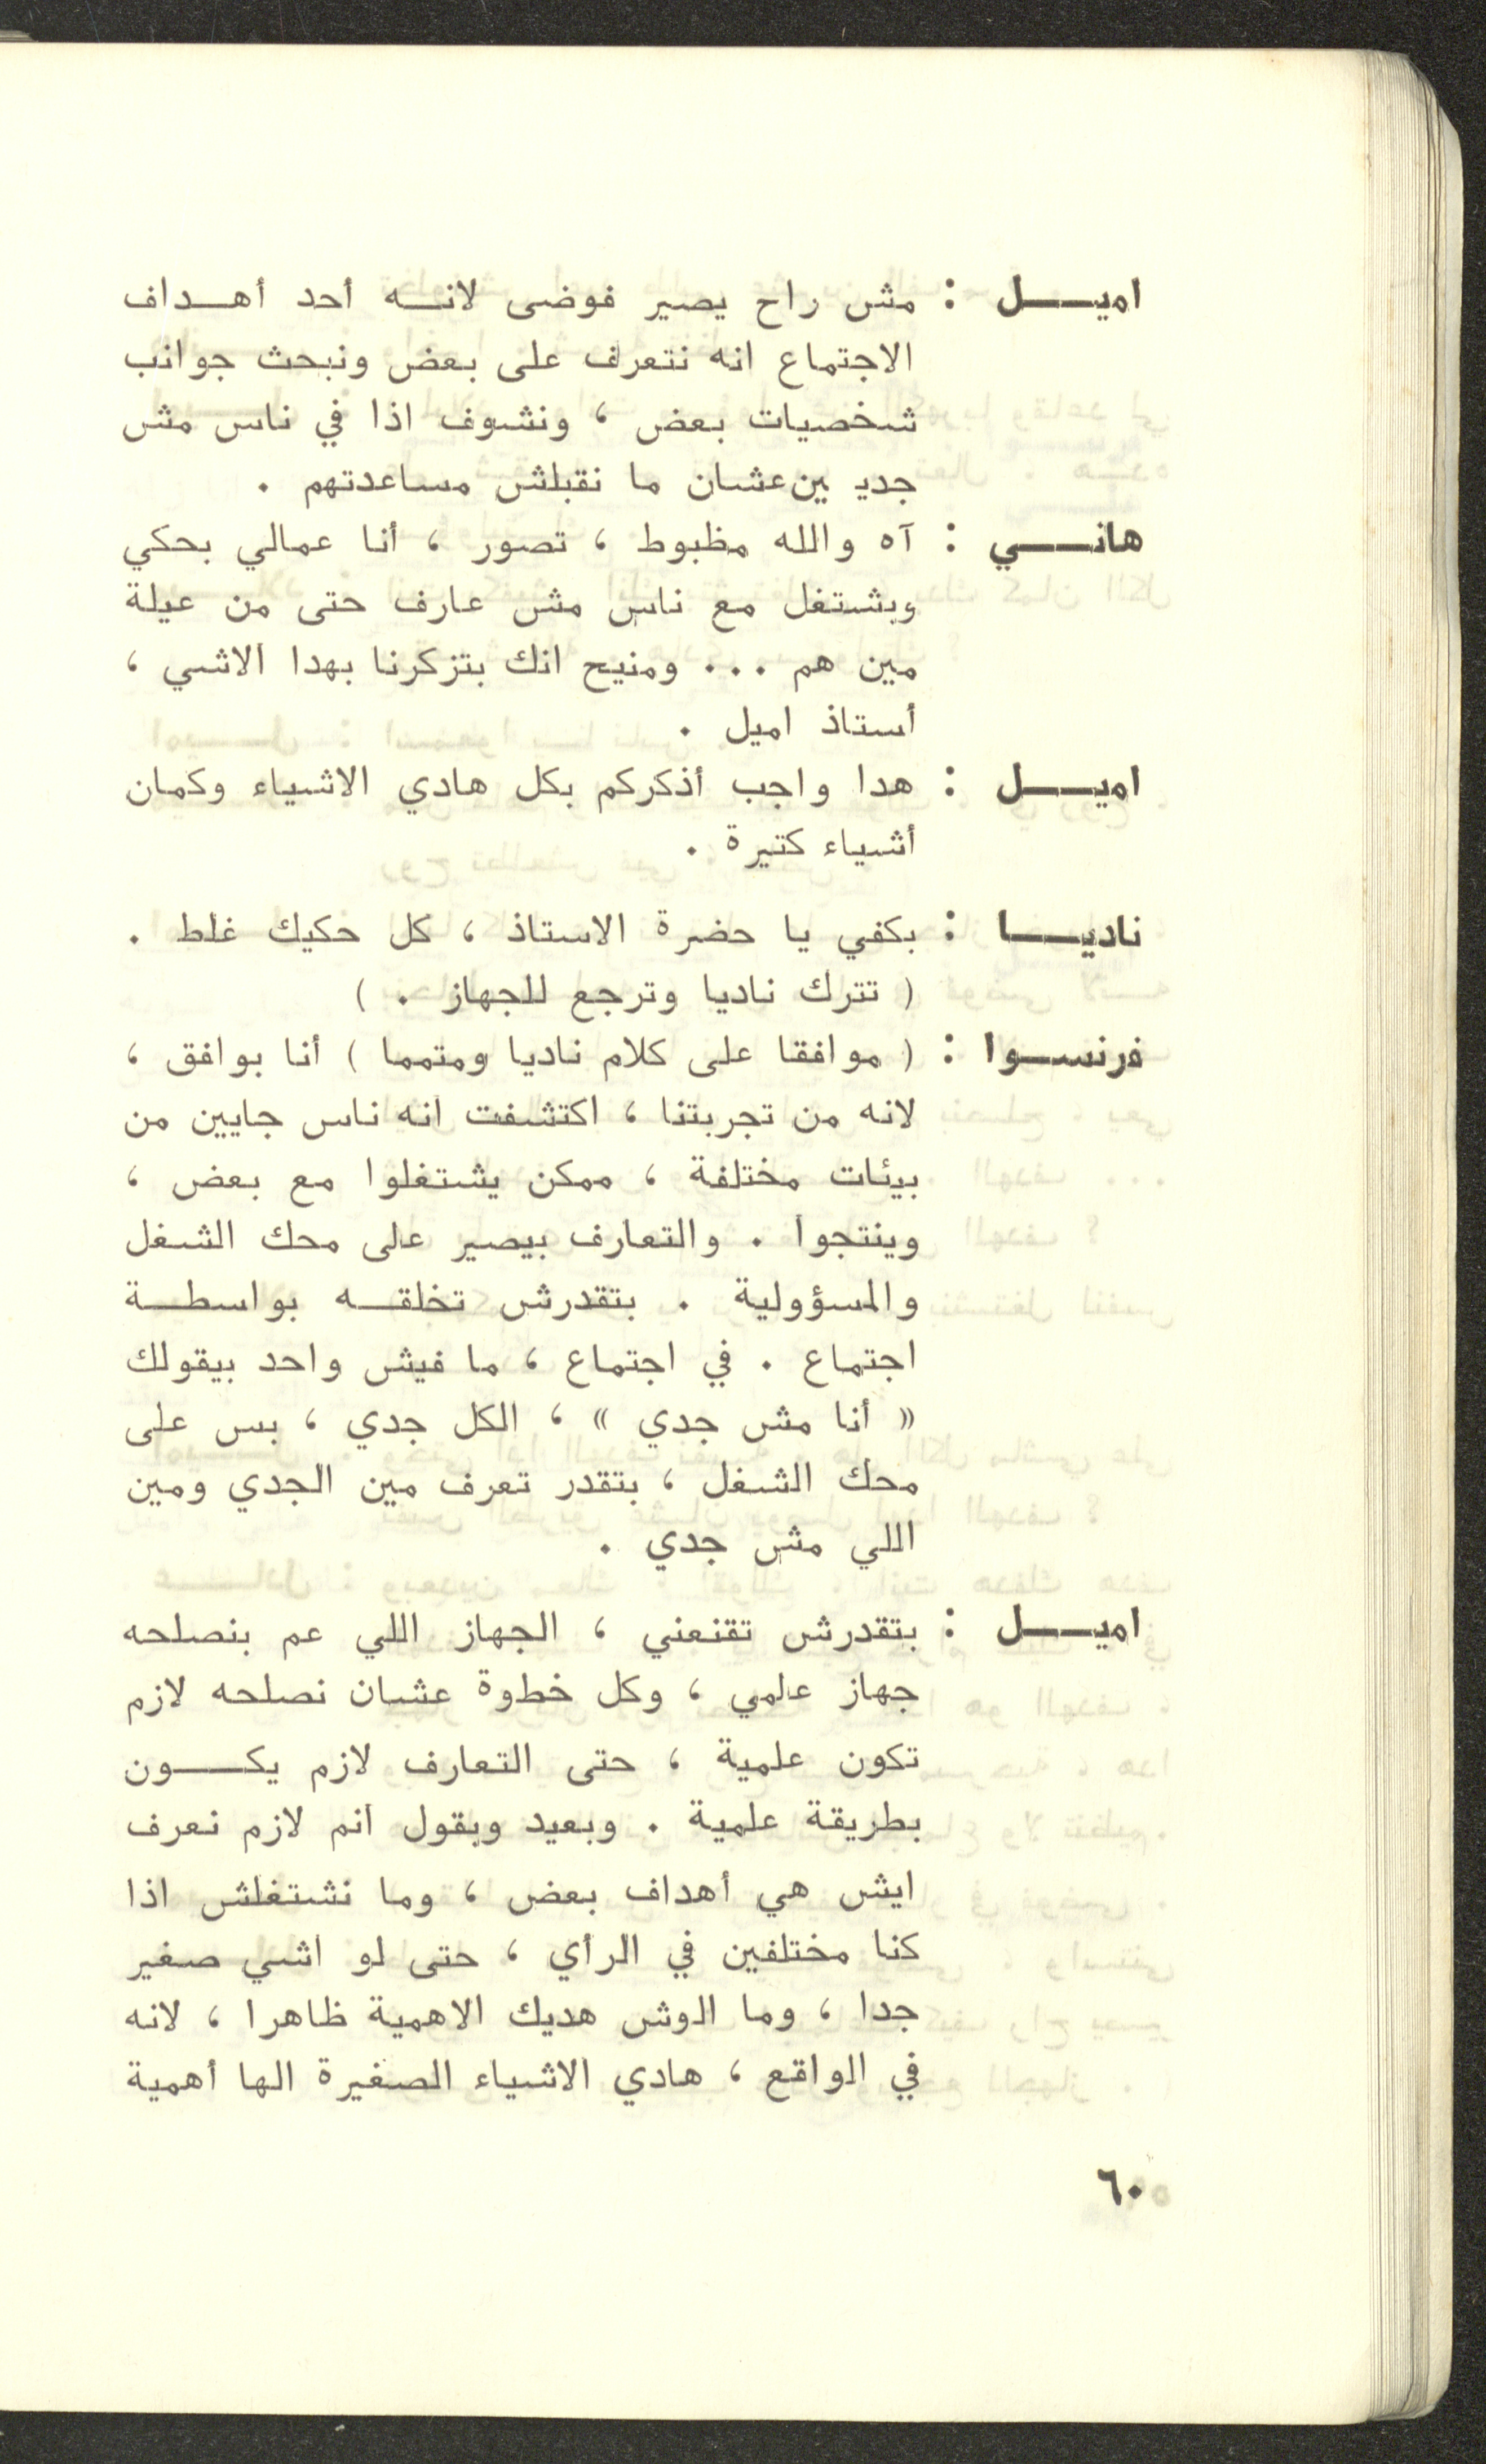 اميل : مش راح يصير فوضى لانه أحد أهداف
الاجتماع انه نتعرف على بعض ونبحث جوانب
شخصيات بعض ، ونشوف اذا في ناس مش
جديين عشان ما نقبلش مساعدتهم .
هاني : آه والله مظبوط ، تصور ، أنا عمالي بحكي
وبشتغل مع ناس مش عارف حتى من عيلة
مين هم ... ومنيح انك بتزكرنا بهدا الاشي ،
أستاذ اميل .
اميل : هدا واجب أذكركم بكل هادي الاشياء وكمان
أشياء كتيرة .
ناديا : بكفي يا حضرة الاستاذ ، كل حكيك غلط .
( تترك ناديا وترجع للجهاز . )
فرنسوا : ( موافقا على كلام ناديا ومتمما ) أنا بوافق ،
لانه من تجربتنا ، اكتشفت انه ناس جايين من
بيئات مختلفة ، ممكن يشتغلوا مع بعض ،
وينتجوا . والتعارف بيصير على محك الشغل
والمسؤولية . بتقدرش تخلقه بواسطة
اجتماع . في اجتماع ، ما فيش واحد بيقولك
« أنا مش جدي » ، الكل جدي ، بس على
محك الشغل ، بتقدر تعرف مين الجدي ومين
اللي مش جدي .
اميل : بتقدرش تقنعني ، الجهاز اللي عم بنصلحه
جهاز علمي ، وكل خطوة عشان نصلحه لازم
تكون علمية ، حتى التعارف لازم يكون
بطريقة علمية . وبعيد وبقول انم لازم نعرف
ايش هي أهداف بعض ، وما نشتغلش اذا
كنا مختلفين في الرأي ، حتى لو اشي صغير
جدا ، وما الوش هديك الاهمية ظاهرا ، لانه
في الواقع ، هادي الاشياء الصغيرة الها أهمية
٦٠